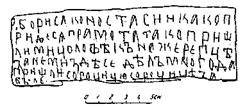 ѿ БОРИСА КО НОСТАСИИ КАКО П
РИДЕ СѦ ГРАМОТА ТАКО ПРИШ
ЛИ МИ ЦОЛОВѢКЪ НА ЖЕРЕПЦѢ
ЗАНЕ МИ ЗДѢСЕ ДѢЛЪ МНОГО ДА
ПРИШЛИ СОРОЦИЦЮ СОРОЦИЦѢ ЗА
БЫЛЕ
0 1 2 3 4 5см